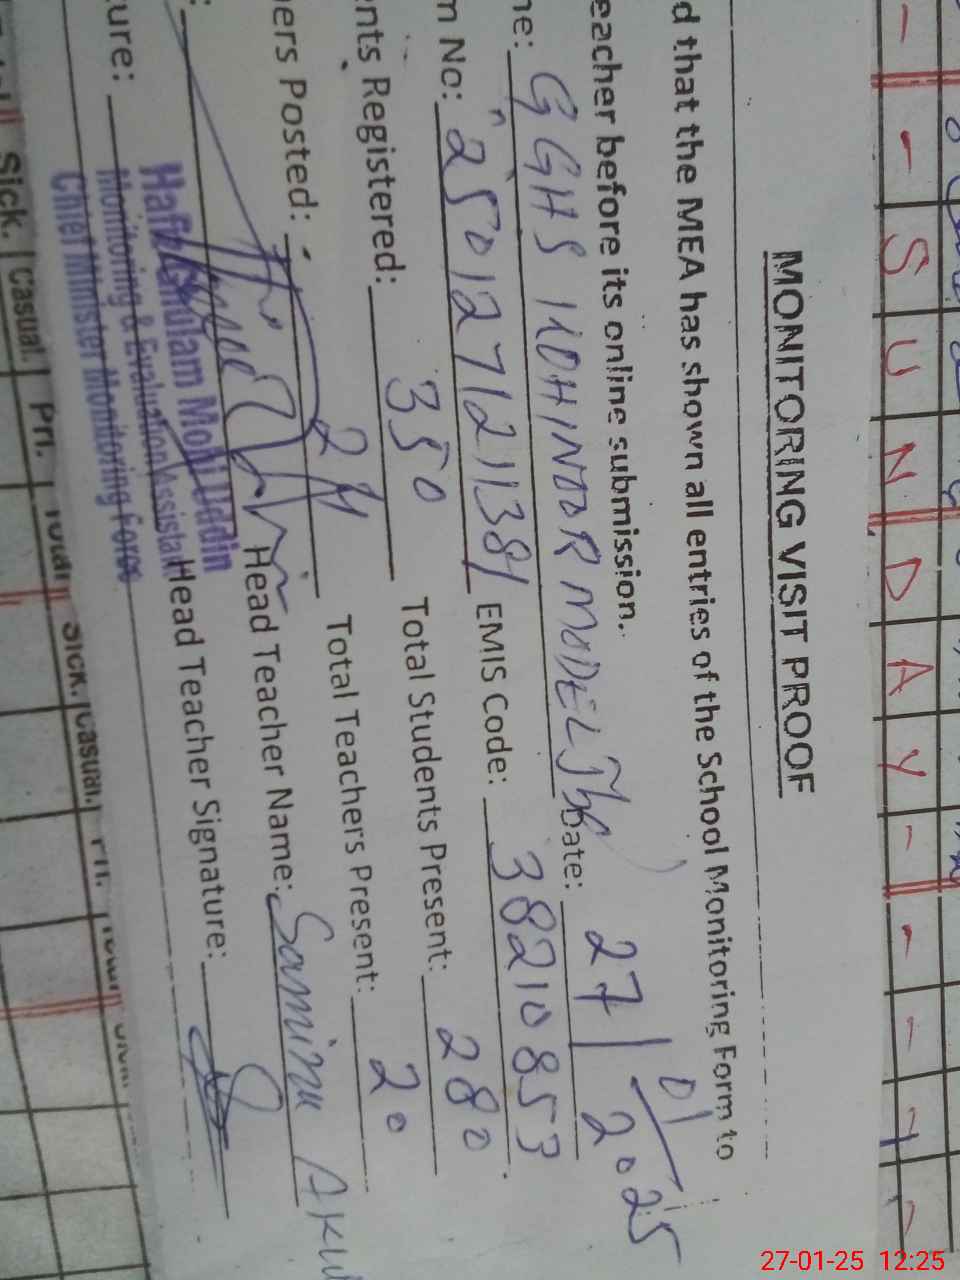 - - S U N D A Y - - - - -
MONITORING VISIT PROOF
d that the MEA has shown all entries of the School Monitoring Form to
eacher before its online submission.
ne: GGHS KOHINOOR MODEL Date: 27/01/2025
m No: 25012712138/ EMIS Code: 38210853
nts Registered: 350 Total Students Present: 280
ers Posted: 24 Total Teachers Present: 20
Head Teacher Name: Samina
ture: Head Teacher Signature:
Hafiz Ghulam Mohi Uddin
Monitoring & Evaluation Assistant
Chief Minister Monitoring Force
Sick. Casual. Pri. Total Sick. Casual. Pri. Total
27-01-25 12:25